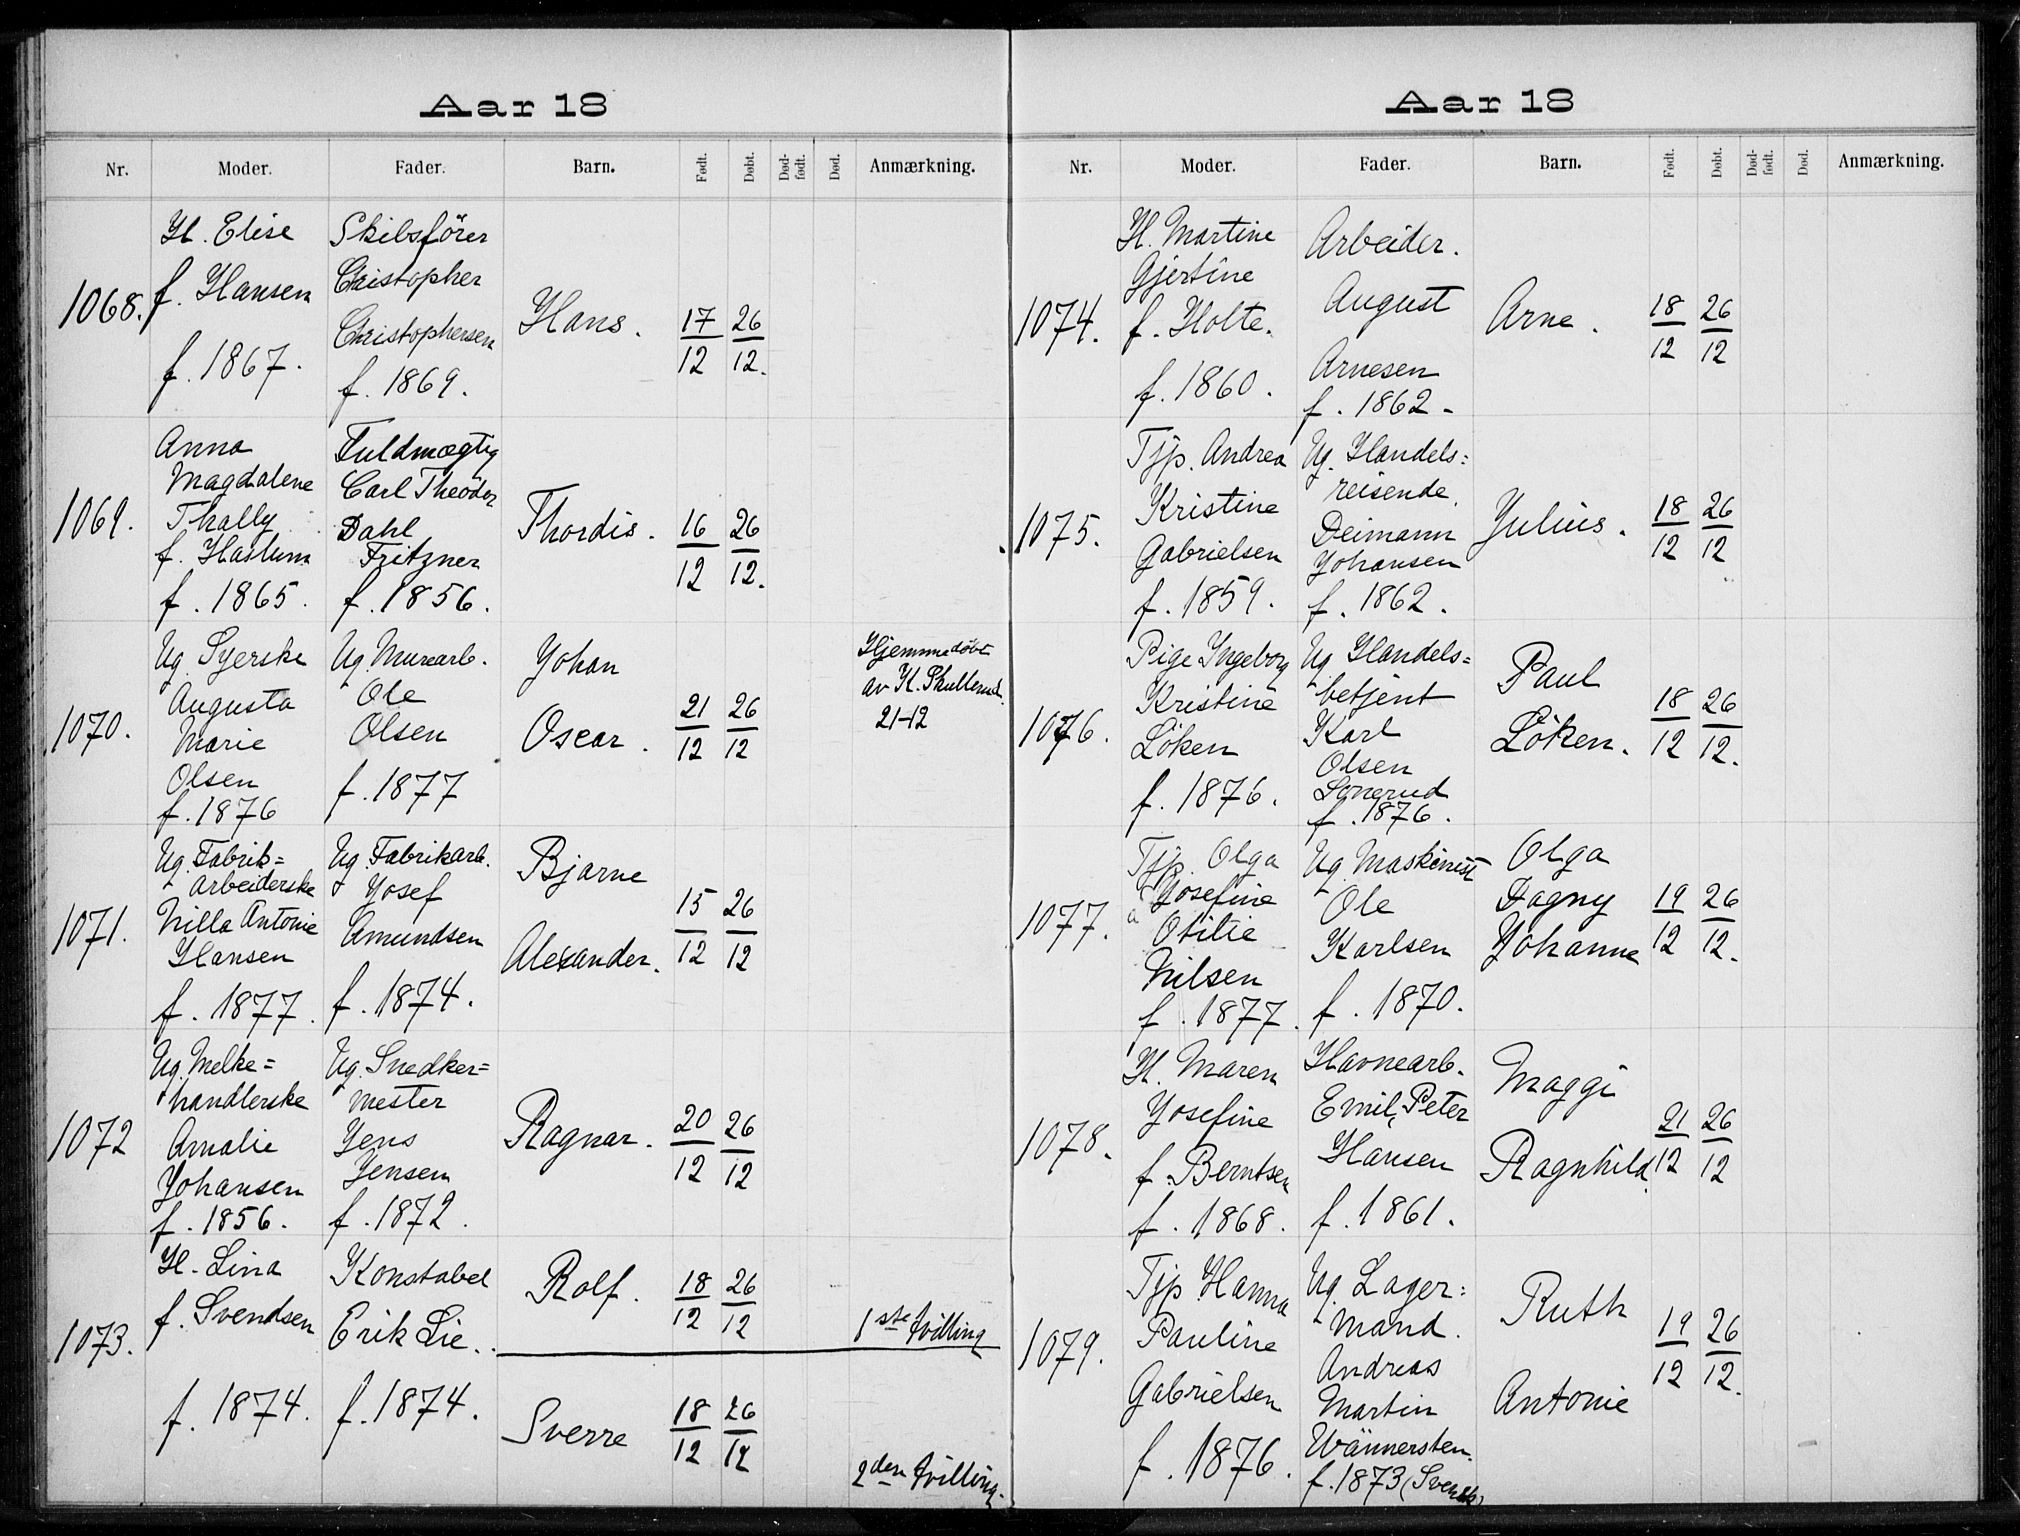 Aar 18
Nr. Moder. Fader. Barn. Født. Døbt. Død-født. Død. Anmærkning.
1068.
H. Elise
f. Hansen
f. 1867.
Skibsförer
Christopher
Christophersen
f. 1869.
Hans.
17/12 26/12.
1069.
Anna
Magdalene
Thally
f. Haslum
f. 1865.
Fuldmægtig
Carl Theodor
Dahl
Fritzner
f. 1856.
Thordis.
16/12 26/12.
1070.
Ug. Syerske
Augusta
Marie
Olsen
f. 1876
Ug. Murearb.
Ole
Olsen
f. 1877
Johan
Oscar.
21/12 26/12
Hjemmedöbt
av K. Skullerud.
21-12
1071.
Ug. Fabrik=
arbeiderske
Nilla Antonie
Hansen
f. 1877.
Ug. Fabrikarb.
Josef
Amundsen
f. 1874.
Bjarne
Alexander.
15/12 26/12
1072
Ug. Melke=
handlerske
Amalie
Johansen
f. 1856.
Ug. Snedker=
mester
Jens
Jensen
f. 1872.
Ragnar.
20/12 26/12
1073.
H. Lina
f. Svendsen
f. 1874.
Konstabel
Erik Lie.
f. 1874.
Rolf.
18/12 26/12
1ste tvilling
Sverre
18/12 26/12
2den tvilling.
Aar 18
Nr. Moder. Fader. Barn. Født. Døbt. Død-født. Død. Anmærkning.
1074.
H. Martine
Gjertine
f. Holte.
f. 1860.
Arbeider.
August
Arnesen
f. 1862.
Arne.
18/12 26/12
1075.
Tjp. Andrea
Kristine
Gabrielsen
f. 1859.
Ug. Handels=
reisende.
Deimann
Johansen
f. 1862.
Julius.
18/12 26/12
1076.
Pige Ingeborg
Kristine
Löken
f. 1876.
Ug. Handels=
betjent
Karl
Olsen
f. 1876.
Paul
Löken.
18/12 26/12.
1077.
Tjp. Olga
Josefine
Otilie
Nilsen
f. 1877.
Ug. Maskinist
Ole
Karlsen
f. 1870.
Olga
Dagny
Johanne
19/12 26/12.
1078.
H. Maren
Josefine
f. Berntsen
f. 1868.
Havnearb.
Emil Peter
Hansen
f. 1861.
Maggi
Ragnhild.
21/12 26/12
1079.
Tjp Hanna
Pauline
Gabrielsen
f. 1876.
Ug. Lager=
mand.
Andreas
Martin
Wännersten
f. 1873 (Svensk)
Ruth
Antonie
19/12 26/12.